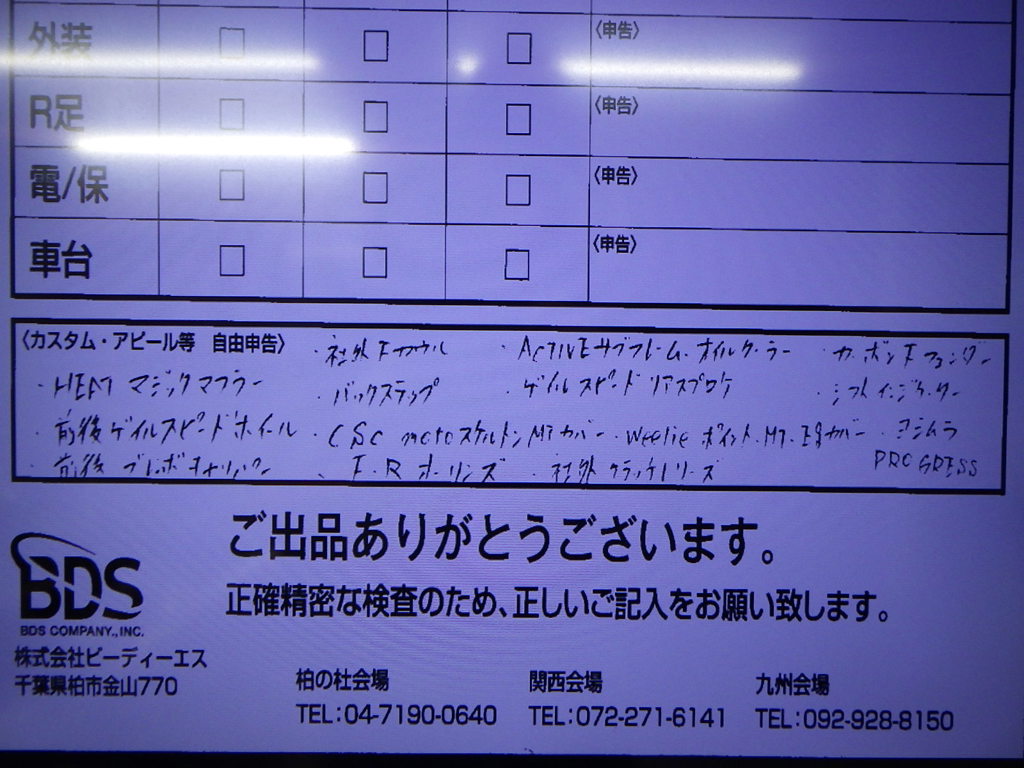 外装 □ □ □ 〈申告〉
R足 □ □ □ 〈申告〉
電/保 □ □ □ 〈申告〉
車台 □ □ □ 〈申告〉
〈カスタム・アピール等 自由申告〉 ・社外Fカウル ・ACTIVEサブフレーム・オイルクーラー ・カーボンFフェンダー
・HEAT マジックマフラー ・バックステップ ・ゲイルスピード リアスプロケ ・シフトインジケーター
・前後ゲイルスピードホイール ・CSC motoスケルトン カバー ・ポイント カバー ・ヨシムラ
・前後 ブレンボキャリパー ・F・Rオーリンズ ・社外 PROGRESS
BDS
BDS COMPANY.,INC.
株式会社ビーディーエス
千葉県柏市金山770
ご出品ありがとうございます。
正確精密な検査のため、正しいご記入をお願い致します。
柏の杜会場 関西会場 九州会場
TEL:04-7190-0640 TEL:072-271-6141 TEL:092-928-8150